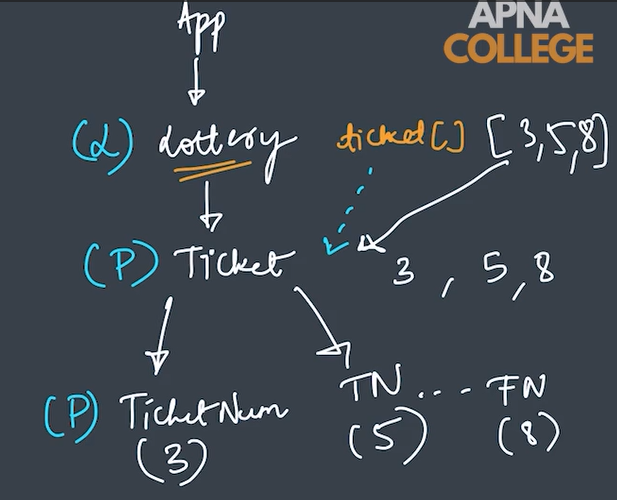 App
APNA
COLLEGE
(L) Lottery ticket[] [3,5,8]
(P) Ticket
3 , 5,8
(P) TicketNum TN ..-- FN
(3) (5) (8)